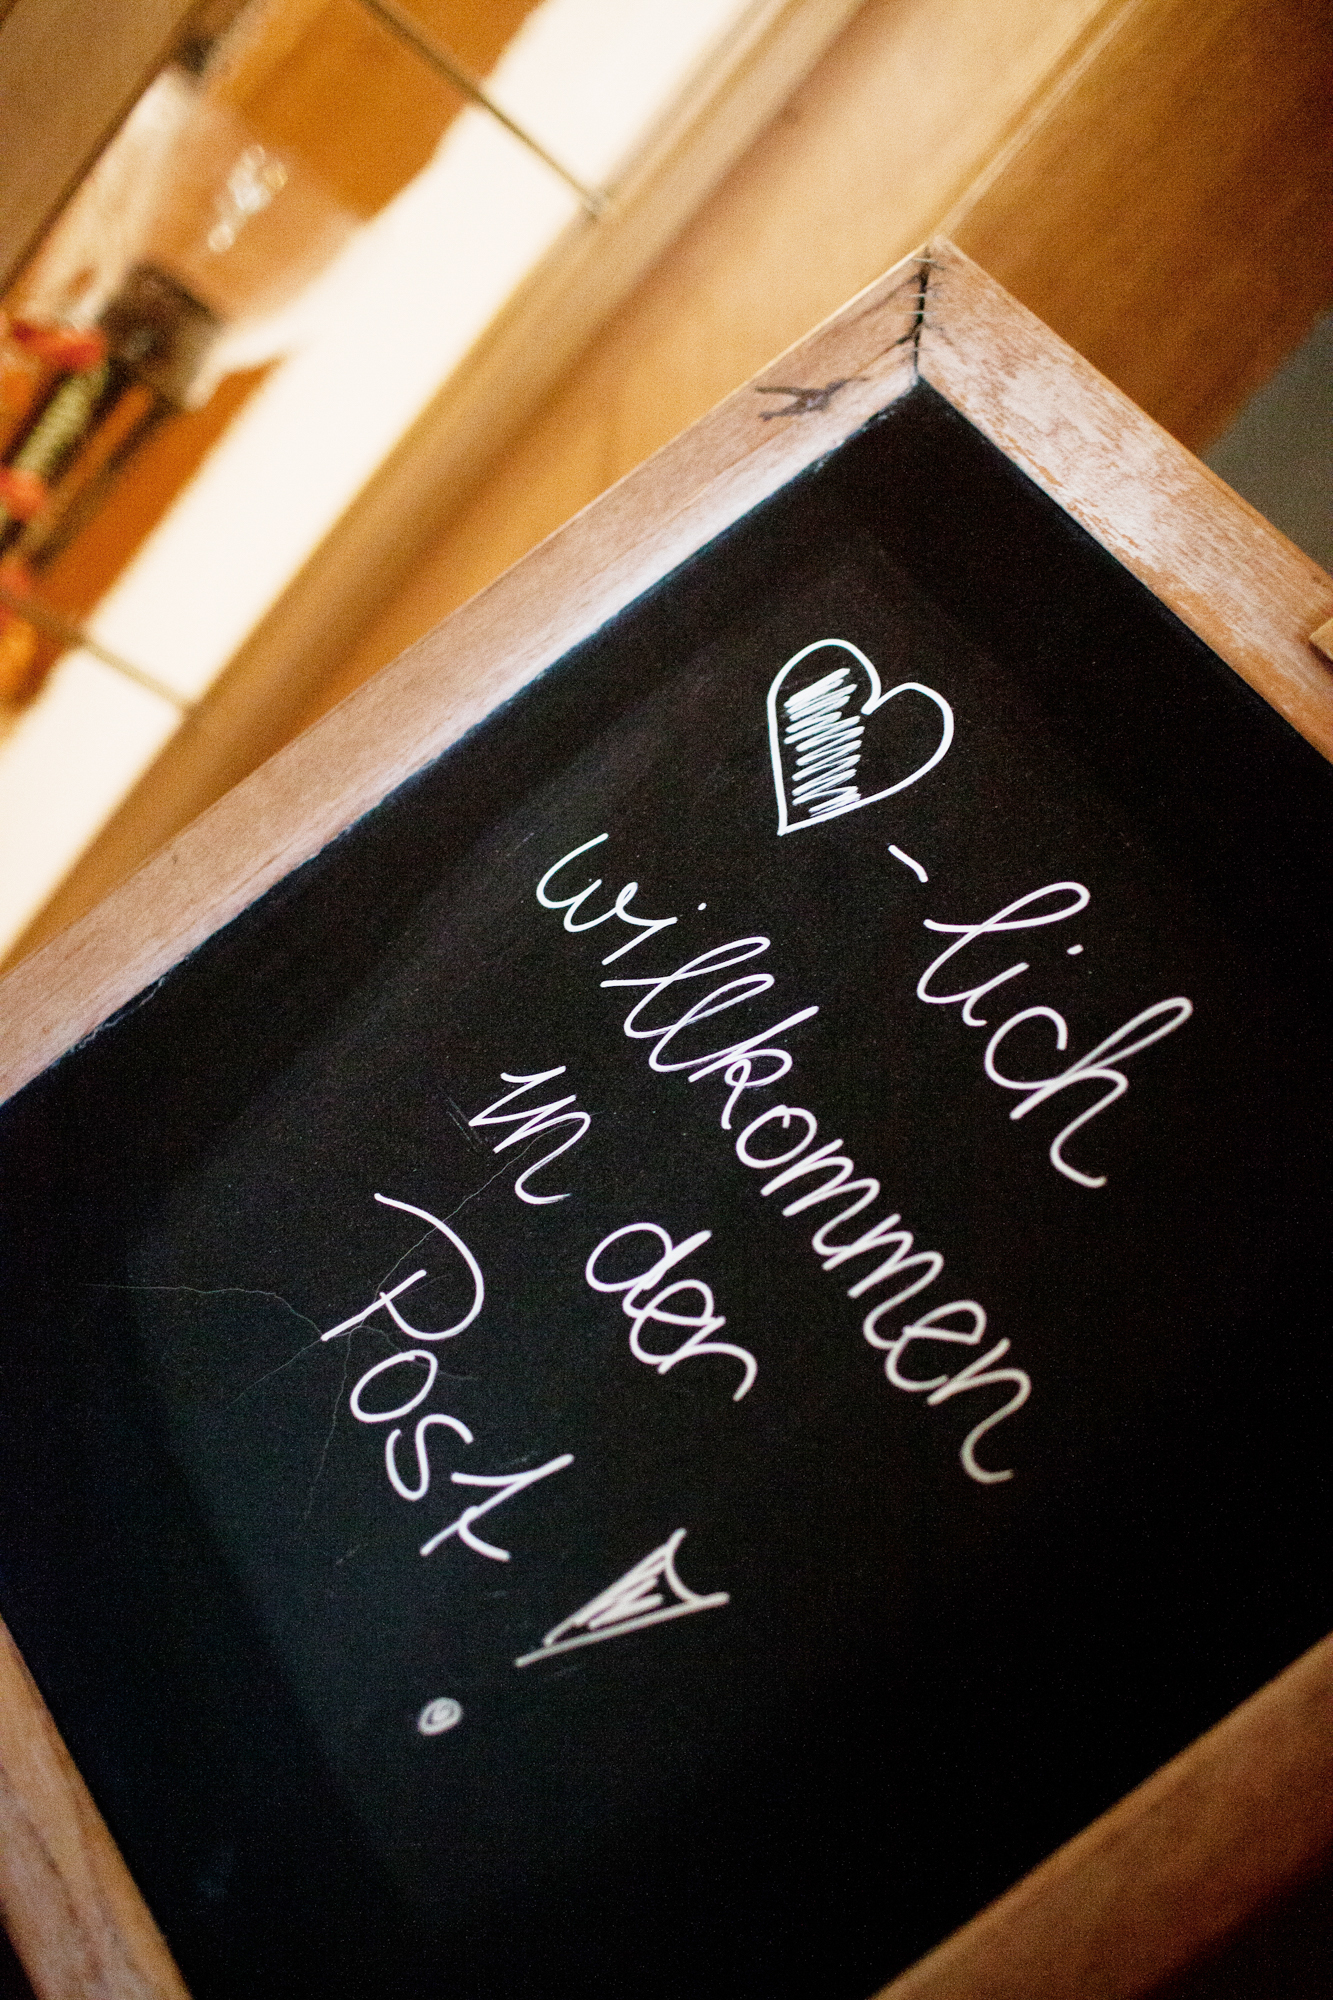 ♥-lich
willkommen
in der
Post!